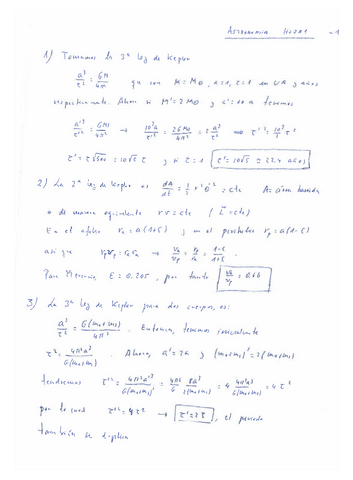 Astronomía Hoja 1 -1
1) Tomamos la 3ª ley de Kepler
a³/τ² = GM/4π² que con M = M⊙, a=1, τ=1 en UA y años
respectivamente. Ahora si M' = 2M⊙ y a' = 10 a tenemos
a'³/τ'² = GM'/4π² → 10³a³/τ'² = 2GM⊙/4π² = 2 a³/τ² ⇒ τ'² = 10³/2 τ²
τ' = τ√500 = 10√5 τ y si τ = 1 τ' = 10√5 ≈ 22.4 años
2) La 2ª ley de Kepler es dA/dt = ½ r² θ̇ = cte A = área barrida
o de manera equivalente r v = cte (L = cte)
En el afelio rₐ = a(1+ε) y en el perihelio rₚ = a(1-ε)
así que vₚrₚ = vₐrₐ → vₐ/vₚ = rₚ/rₐ = (1-ε)/(1+ε)
Para Mercurio, ε = 0.205, por tanto vₐ/vₚ = 0.66
3) La 3ª ley de Kepler para dos cuerpos, es:
a³/τ² = G(m₁+m₂)/4π². Entonces, tenemos inicialmente
τ² = 4π²a³/G(m₁+m₂). Ahora, a' = 2a y (m₁+m₂)' = 2(m₁+m₂)
tendremos τ'² = 4π²a'³/G(m₁+m₂)' = 4π²/G 8a³/2(m₁+m₂) = 4 4π²a³/G(m₁+m₂) = 4τ²
por lo cual τ'² = 4τ² → τ' = 2τ, el periodo
también se duplica